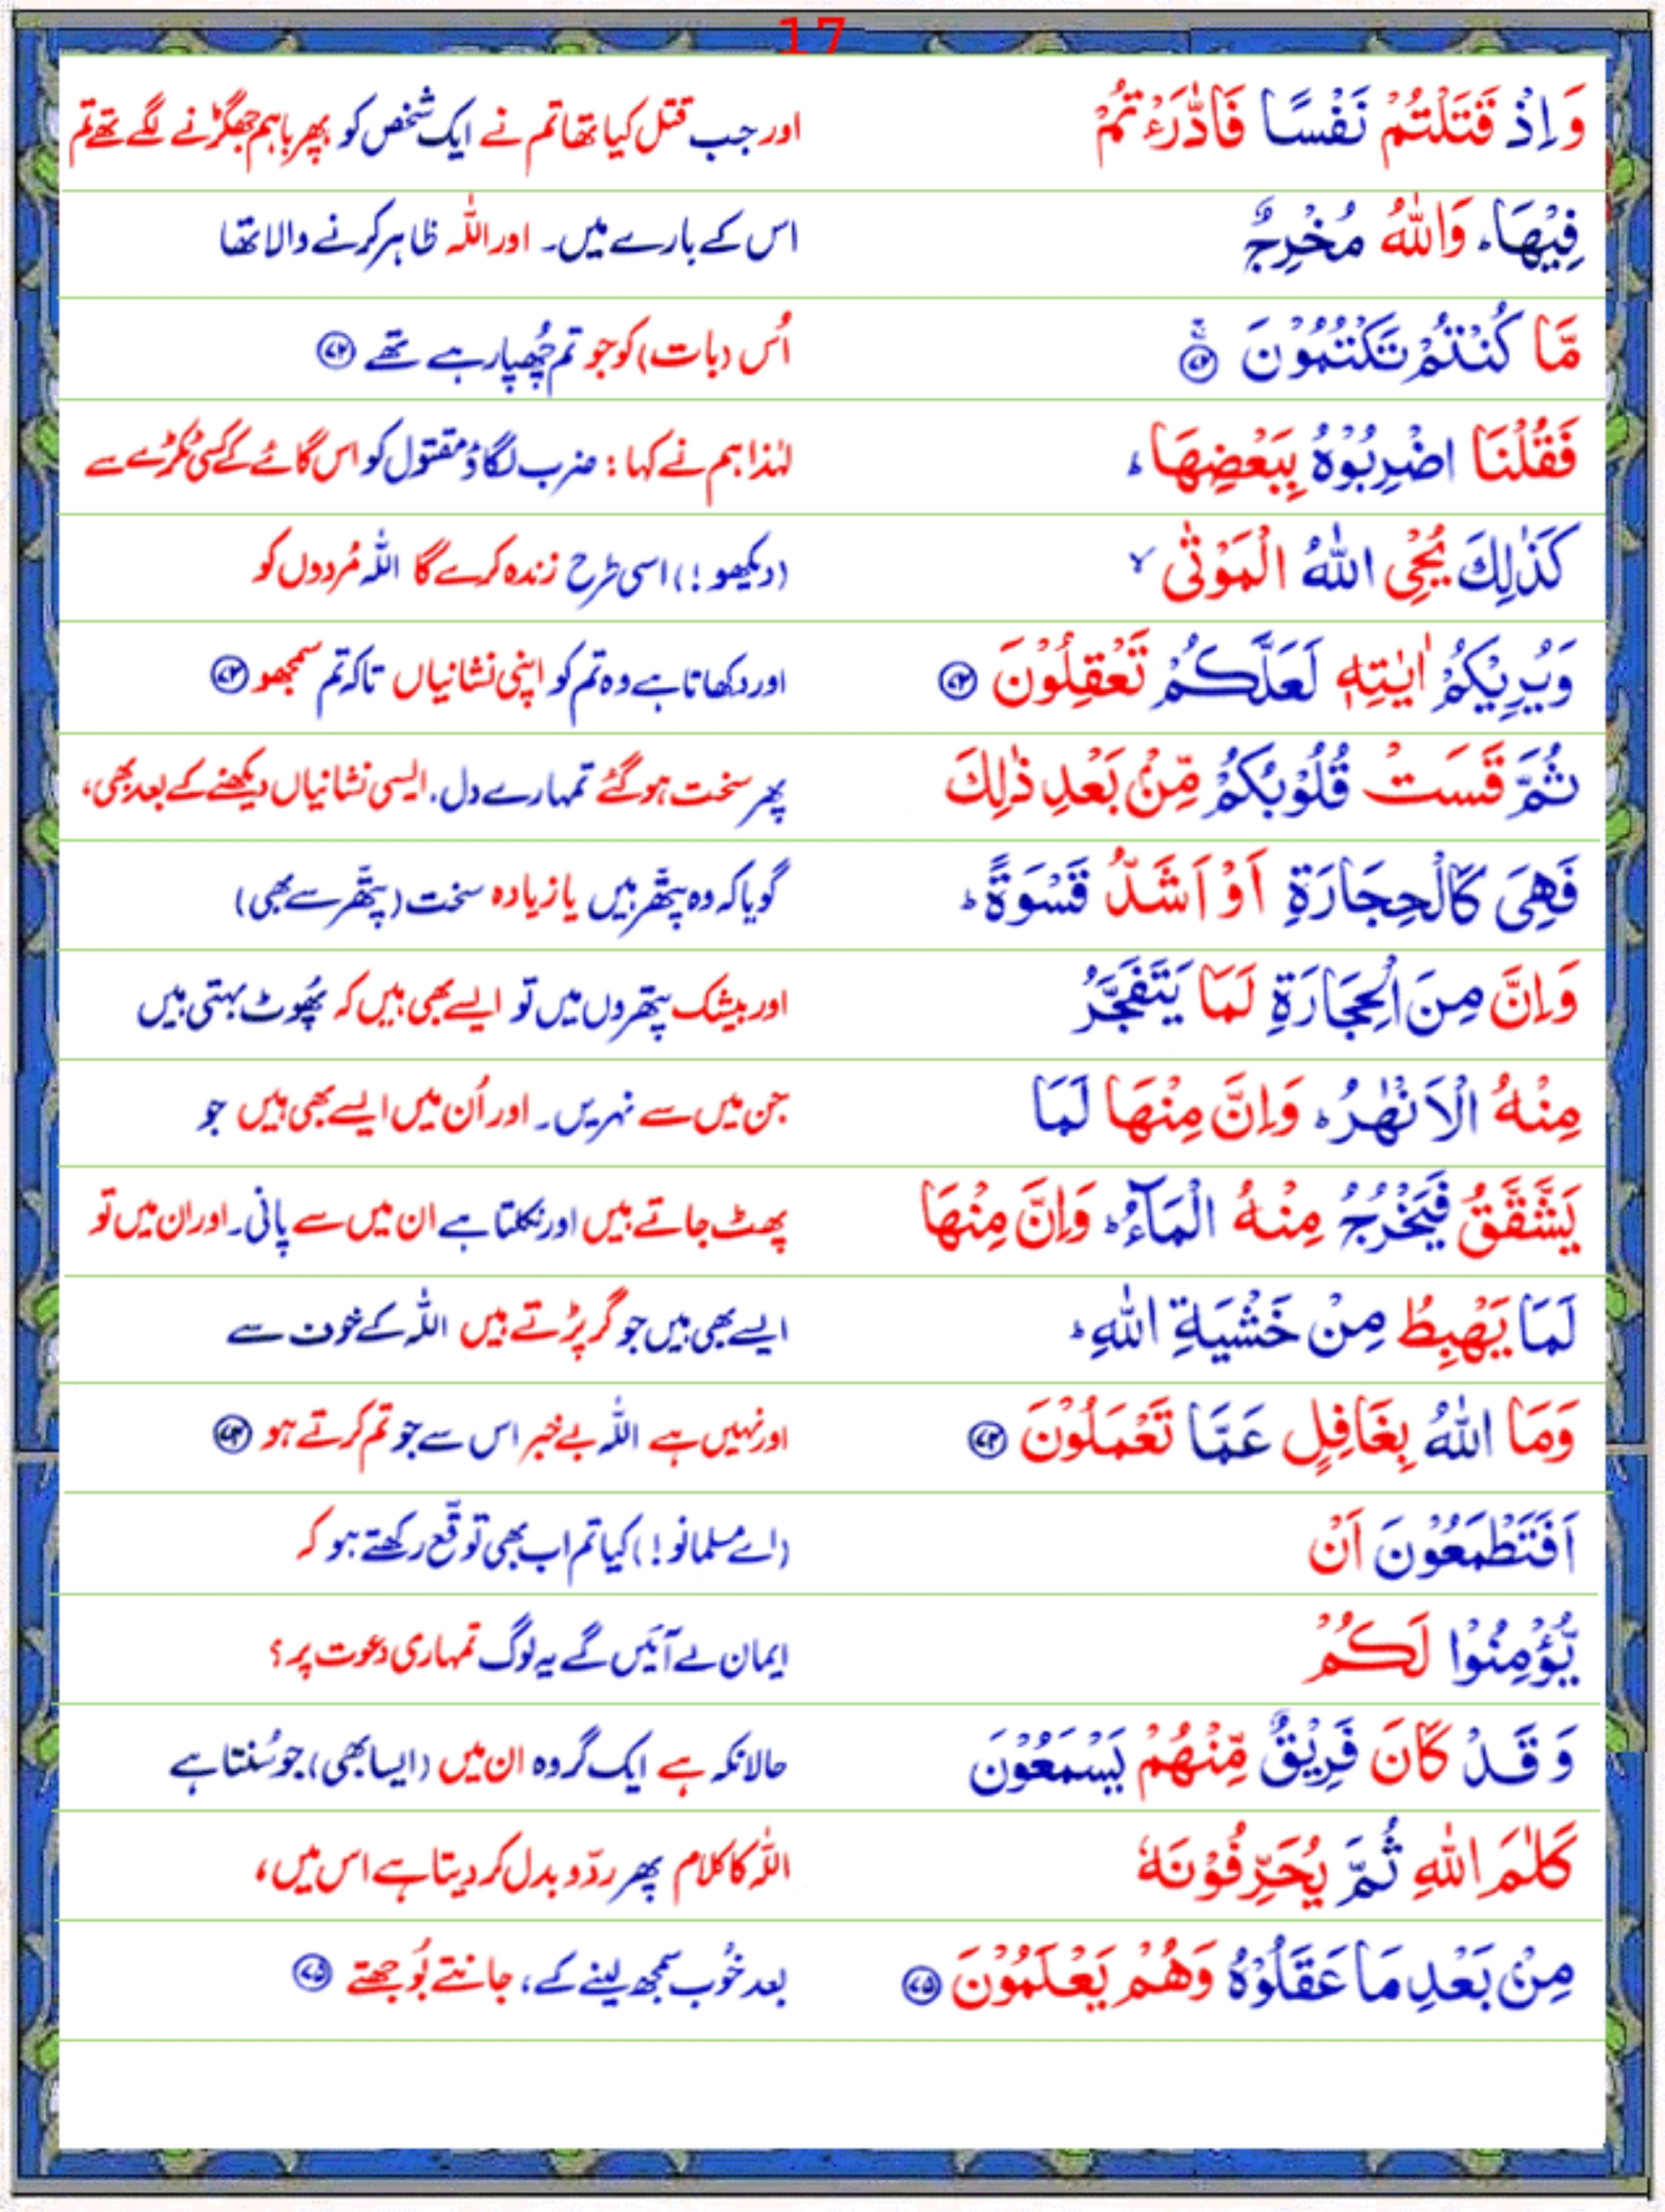 17
وَاِذْ قَتَلْتُمْ نَفْسًا فَادّٰرَءْتُمْ
اور جب قتل کیا تھا تم نے ایک شخص کو پھر باہم جھگڑنے لگے تھے تم
فِيْهَا ؕ وَاللّٰهُ مُخْرِجٌ
اس کے بارے میں۔ اور اللّٰہ ظاہر کرنے والا تھا
مَّا كُنْتُمْ تَكْتُمُوْنَ ۚ ﴿۷۲﴾
اُس (بات) کو جو تم چُھپا رہے تھے ﴿۷۲﴾
فَقُلْنَا اضْرِبُوْهُ بِبَعْضِهَا ؕ
لہٰذا ہم نے کہا : ضرب لگاؤ مقتول کو اس گائے کے کسی ٹکڑے سے
كَذٰلِكَ يُحْيِ اللّٰهُ الْمَوْتٰى ۙ
(دیکھو !) اسی طرح زندہ کرے گا اللّٰہ مُردوں کو
وَيُرِيْكُمْ اٰيٰتِهٖ لَعَلَّكُمْ تَعْقِلُوْنَ ﴿۷۳﴾
اور دکھاتا ہے وہ تم کو اپنی نشانیاں تاکہ تم سمجھو ﴿۷۳﴾
ثُمَّ قَسَتْ قُلُوْبُكُمْ مِّنْ بَعْدِ ذٰلِكَ
پھر سخت ہو گئے تمہارے دل، ایسی نشانیاں دیکھنے کے بعد بھی،
فَهِىَ كَالْحِجَارَةِ اَوْ اَشَدُّ قَسْوَةً ؕ
گویا کہ وہ پتھّر ہیں یا زیادہ سخت (پتھّر سے بھی)
وَاِنَّ مِنَ الْحِجَارَةِ لَمَا يَتَفَجَّرُ
اور بیشک پتھروں میں تو ایسے بھی ہیں کہ پُھوٹ بہتی ہیں
مِنْهُ الْاَنْهٰرُ ؕ وَاِنَّ مِنْهَا لَمَا
جن میں سے نہریں۔ اور اُن میں ایسے بھی ہیں جو
يَشَّقَّقُ فَيَخْرُجُ مِنْهُ الْمَآءُ ؕ وَاِنَّ مِنْهَا
پھٹ جاتے ہیں اور نکلتا ہے ان میں سے پانی۔ اور ان میں تو
لَمَا يَهْبِطُ مِنْ خَشْيَةِ اللّٰهِ ؕ
ایسے بھی ہیں جو گر پڑتے ہیں اللّٰہ کے خوف سے
وَمَا اللّٰهُ بِغَافِلٍ عَمَّا تَعْمَلُوْنَ ﴿۷۴﴾
اور نہیں ہے اللّٰہ بے خبر اس سے جو تم کرتے ہو ﴿۷۴﴾
اَفَتَطْمَعُوْنَ اَنْ
(اے مسلمانو !) کیا تم اب بھی توقّع رکھتے ہو کہ
يُّؤْمِنُوْا لَكُمْ
ایمان لے آئیں گے یہ لوگ تمہاری دعوت پر ؟
وَ قَدْ كَانَ فَرِيْقٌ مِّنْهُمْ يَسْمَعُوْنَ
حالانکہ ہے ایک گروہ ان میں (ایسا بھی) جو سُنتا ہے
كَلٰمَ اللّٰهِ ثُمَّ يُحَرِّفُوْنَهٗ
اللّٰہ کا کلام پھر ردّ و بدل کر دیتا ہے اس میں،
مِنْۢ بَعْدِ مَا عَقَلُوْهُ وَهُمْ يَعْلَمُوْنَ ﴿۷۵﴾
بعد خُوب سمجھ لینے کے، جانتے بُوجھتے ﴿۷۵﴾